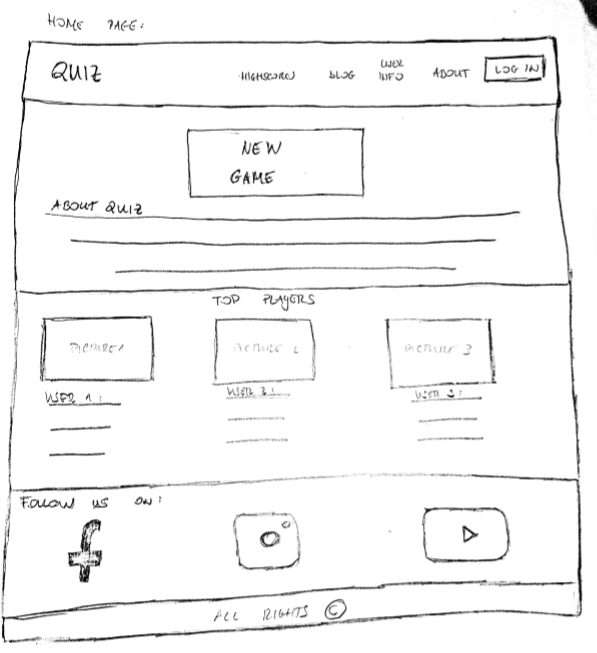 HOME PAGE:
QUIZ
HIGHSCORES
BLOG
USER
INFO
ABOUT
LOG IN
NEW
GAME
ABOUT QUIZ
TOP PLAYERS
PICTURE 1
PICTURE 2
PICTURE 3
USER 1:
USER 2:
USER 3:
FOLLOW US ON:
f
ALL RIGHTS ©